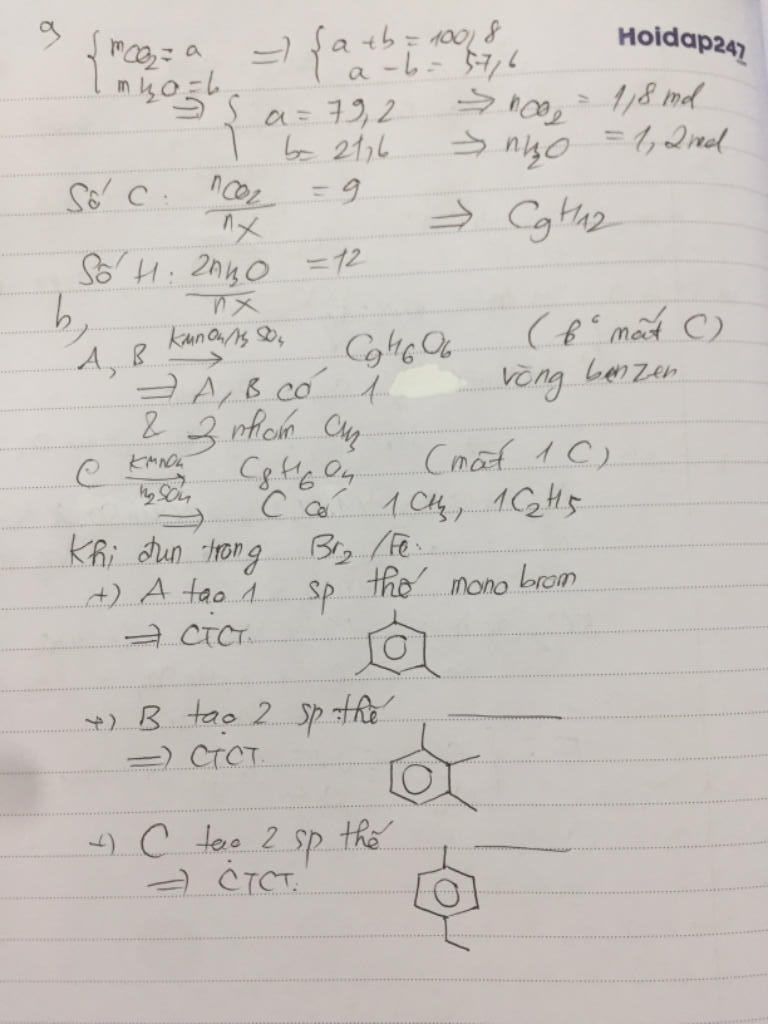 a
{ mCO2 = a => { a + b = 100,8
mH2O = b a - b = 57,6
Hoidap247
=> { a = 79,2 => nCO2 = 1,8 mol
b = 21,6 => nH2O = 1,2 mol
Số C: nCO2/nX = 9
=> C9H12
Số H: 2nH2O/nX = 12
b,
A, B KMnO4/H2SO4 → C9H6O6 (ko mất C)
=> A, B có 1 vòng benzen
& 3 nhóm CH3
C KMnO4 → H2SO4 C8H6O4 (mất 1 C)
=> C có 1 CH3, 1C2H5
Khi đun trong Br2/Fe:
+) A tạo 1 sp thế mono brom
=> CTCT.
+) B tạo 2 sp thế
=> CTCT.
+) C tạo 2 sp thế
=> CTCT.